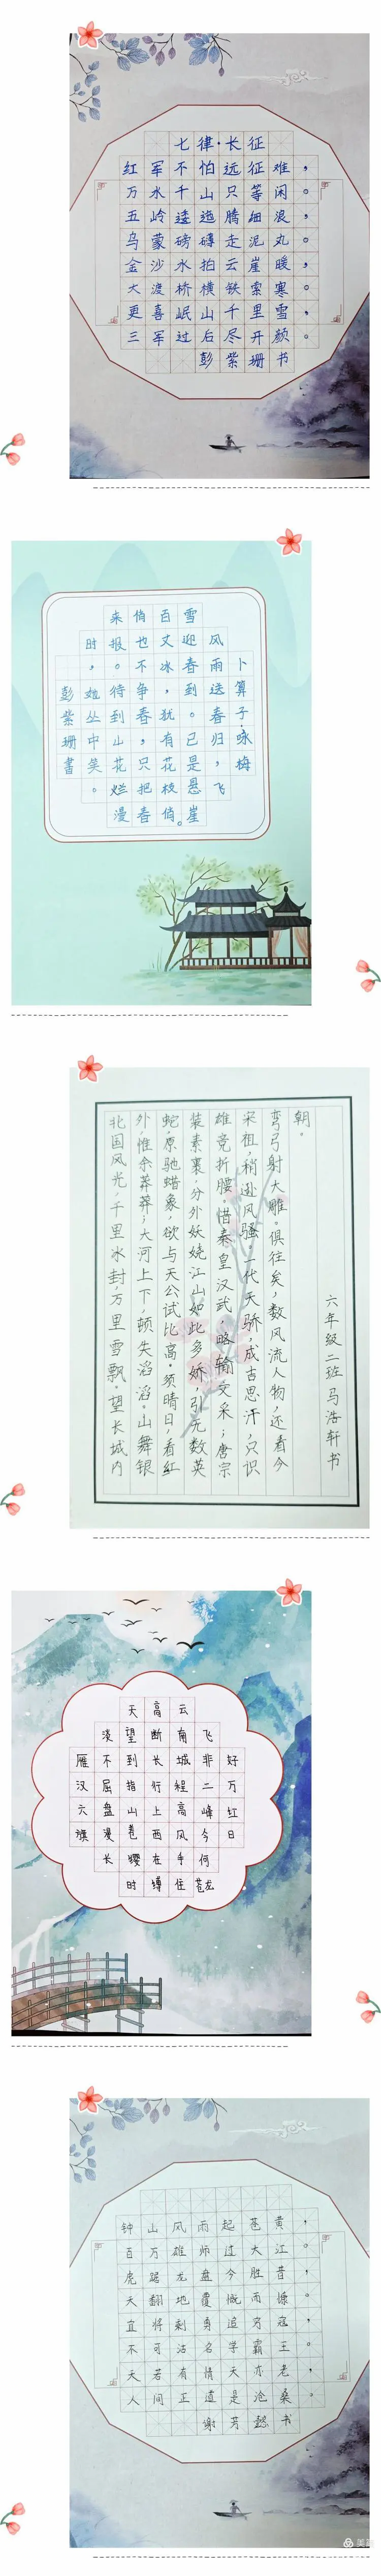 七律·长征
红军不怕远征难，
万水千山只等闲。
五岭逶迤腾细浪，
乌蒙磅礴走泥丸。
金沙水拍云崖暖，
大渡桥横铁索寒。
更喜岷山千里雪，
三军过后尽开颜。
彭紫珊书
卜算子·咏梅
风雨送春归，飞
雪迎春到。已是悬崖
百丈冰，犹有花枝俏。
俏也不争春，只把春
来报。待到山花烂漫
时，她丛中笑。
彭紫珊書
北国风光，千里冰封，万里雪飘。望长城内
外，惟余莽莽；大河上下，顿失滔滔。山舞银
蛇，原驰蜡象，欲与天公试比高。须晴日，看红
装素裹，分外妖娆江山如此多娇，引无数英
雄竞折腰。惜秦皇汉武，略输文采；唐宗
宋祖，稍逊风骚。一代天骄，成吉思汗，只识
弯弓射大雕。俱往矣，数风流人物，还看今
朝。
六年级二班马浩轩书
天高云
淡望断南飞
雁不到长城非好
汉屈指行程二万
六盘山上高峰红
旗漫卷西风今日
长缨在手何
时缚住苍龙
钟山风雨起苍黄，
百万雄师过大江。
虎踞龙盘今胜昔，
天翻地覆慨而慷。
宜将剩勇追穷寇，
不可沽名学霸王。
天若有情天亦老，
人间正道是沧桑。
谢芳懿书